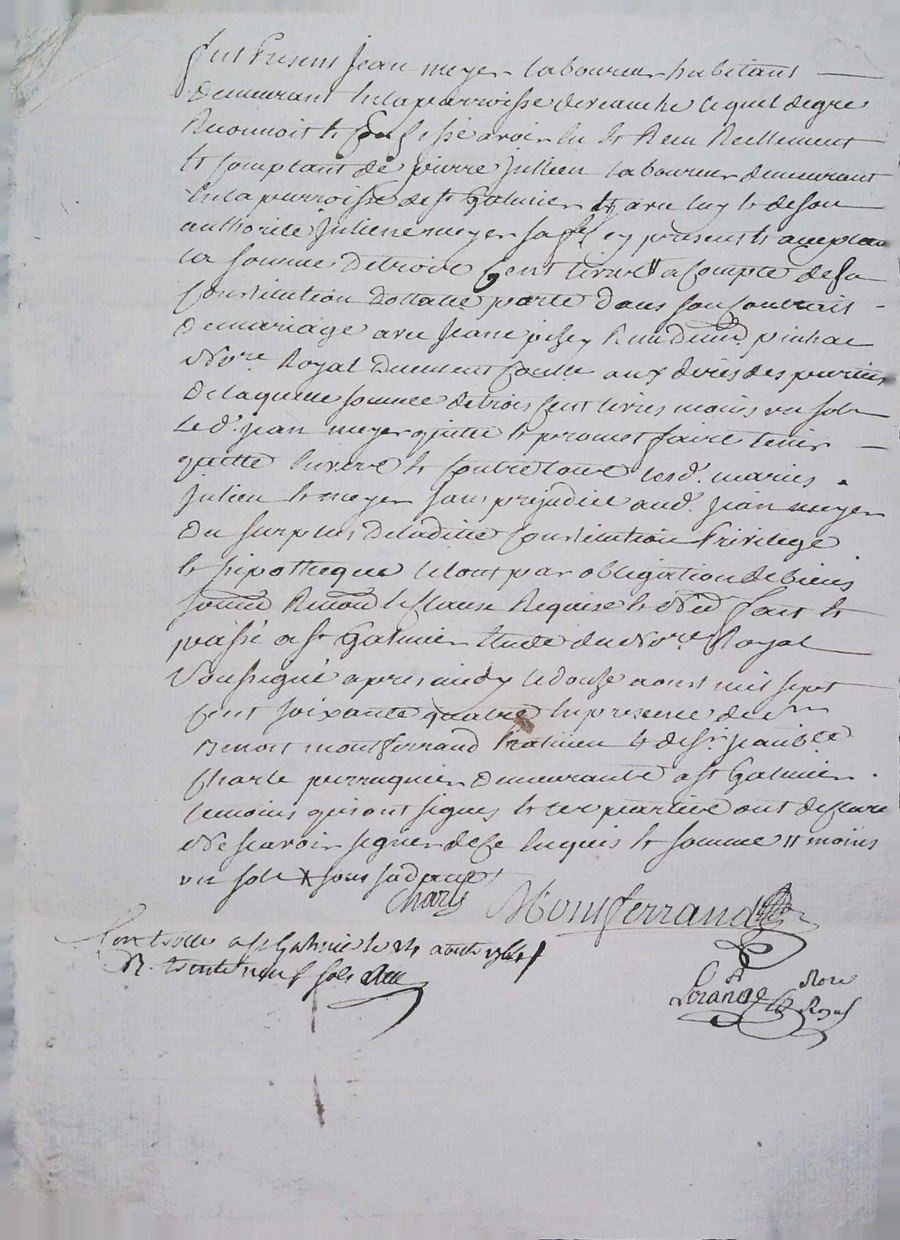 fut Présent Jean meyer laboureur habitant
demeurant en la parroisse de lequel de gré
Reconnoit et Confesse avoir eu et Receu Reellement
et Comptant de pierre Julien laboureur demeurant
en la parroisse de st Galmier avec luy et de son
authorité Juliene meyer sa fe cy presente et acceptan
la somme de trois Cent livres a Compte de sa
Constitution dottalle porté dans son Contrait
de mariage avec Jeane Receu pinhac
No.re Royal duement Controllé aux dires des parties
de laquelle somme de trois Cent livres moins un sole
Le d. Jean meyer quitte et promet faire tenir
quitte envers et Contre tous lesd. mariés
Julien et meyer sans prejudice aud. Jean meyer
du surplus de laditte Constitution Privilege
et hipotheque le tout par obligation de biens
soumis Renon et Clause Requise
passé a st Galmier Etude du No.re Royal
Soussigné apres midy le douse aoust mil sept
Cent soixante quatre en presence de sr
Benoit montferrand et de sr
Charle perruquier demeurants a st Galmier
temoins qui ont signés et les parties ont declaré
Ne scavoir signer de ce enquis et somme moins
un sole
Charle Montferrand
Controllé a st Galmier le 14 aoust 1764
R. trente neuf sols
Nore
Royal